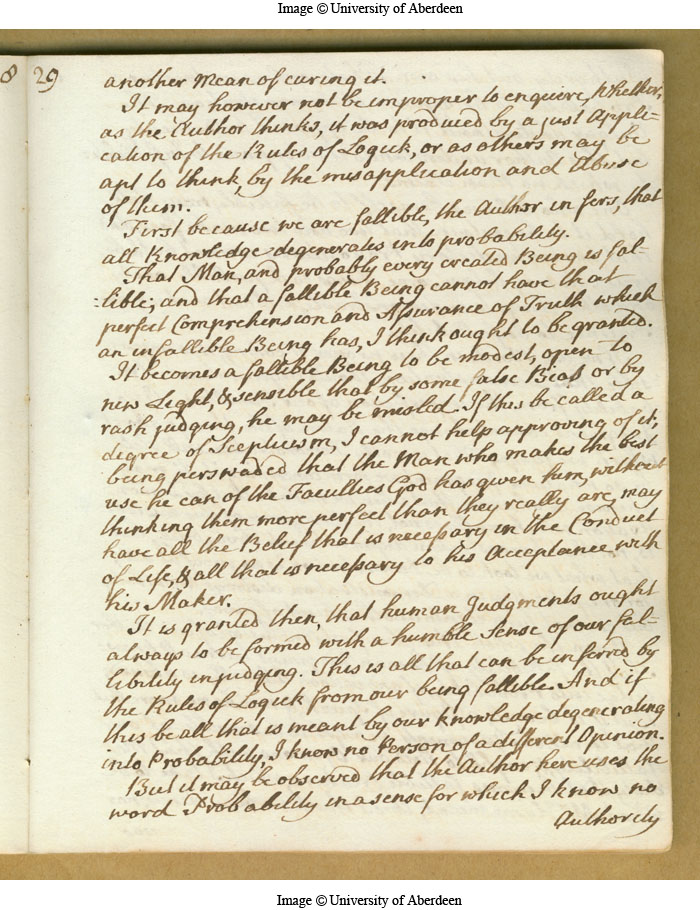 Image © University of Aberdeen
8 29
another Mean of curing it.
It may however not be improper to enquire, Whether,
as the Author thinks, it was produced by a just Appli-
cation of the Rules of Logick, or as others may be
apt to think, by the misapplication and Abuse
of them.
First because we are fallible, the Author infers, that
all Knowledge degenerates into probability.
That Man, and probably every created Being is fal-
-lible; and that a fallible Being cannot have that
perfect Comprehension and Assurance of Truth which
an infallible Being has, I think ought to be granted.
It becomes a fallible Being to be modest, open to
new Light, & sensible that by some false Bias or by
rash judging, he may be misled. If this be called a
degree of Scepticism, I cannot help approving of it;
being perswaded that the Man who makes the best
use he can of the Faculties God has given him, without
thinking them more perfect than they really are, may
have all the Belief that is necessary in the Conduct
of Life, & all that is necessary to his Acceptance with
his Maker.
It is granted then, that human Judgments ought
always to be formed with a humble Sense of our fal-
libility in judging. This is all that can be inferred by
the Rules of Logick from our being fallible. And if
this be all that is meant by our knowledge degenerating
into Probability, I know no Person of a different Opinion.
But it may be observed that the Author here uses the
word Probability in a sense for which I know no
Authority
Image © University of Aberdeen